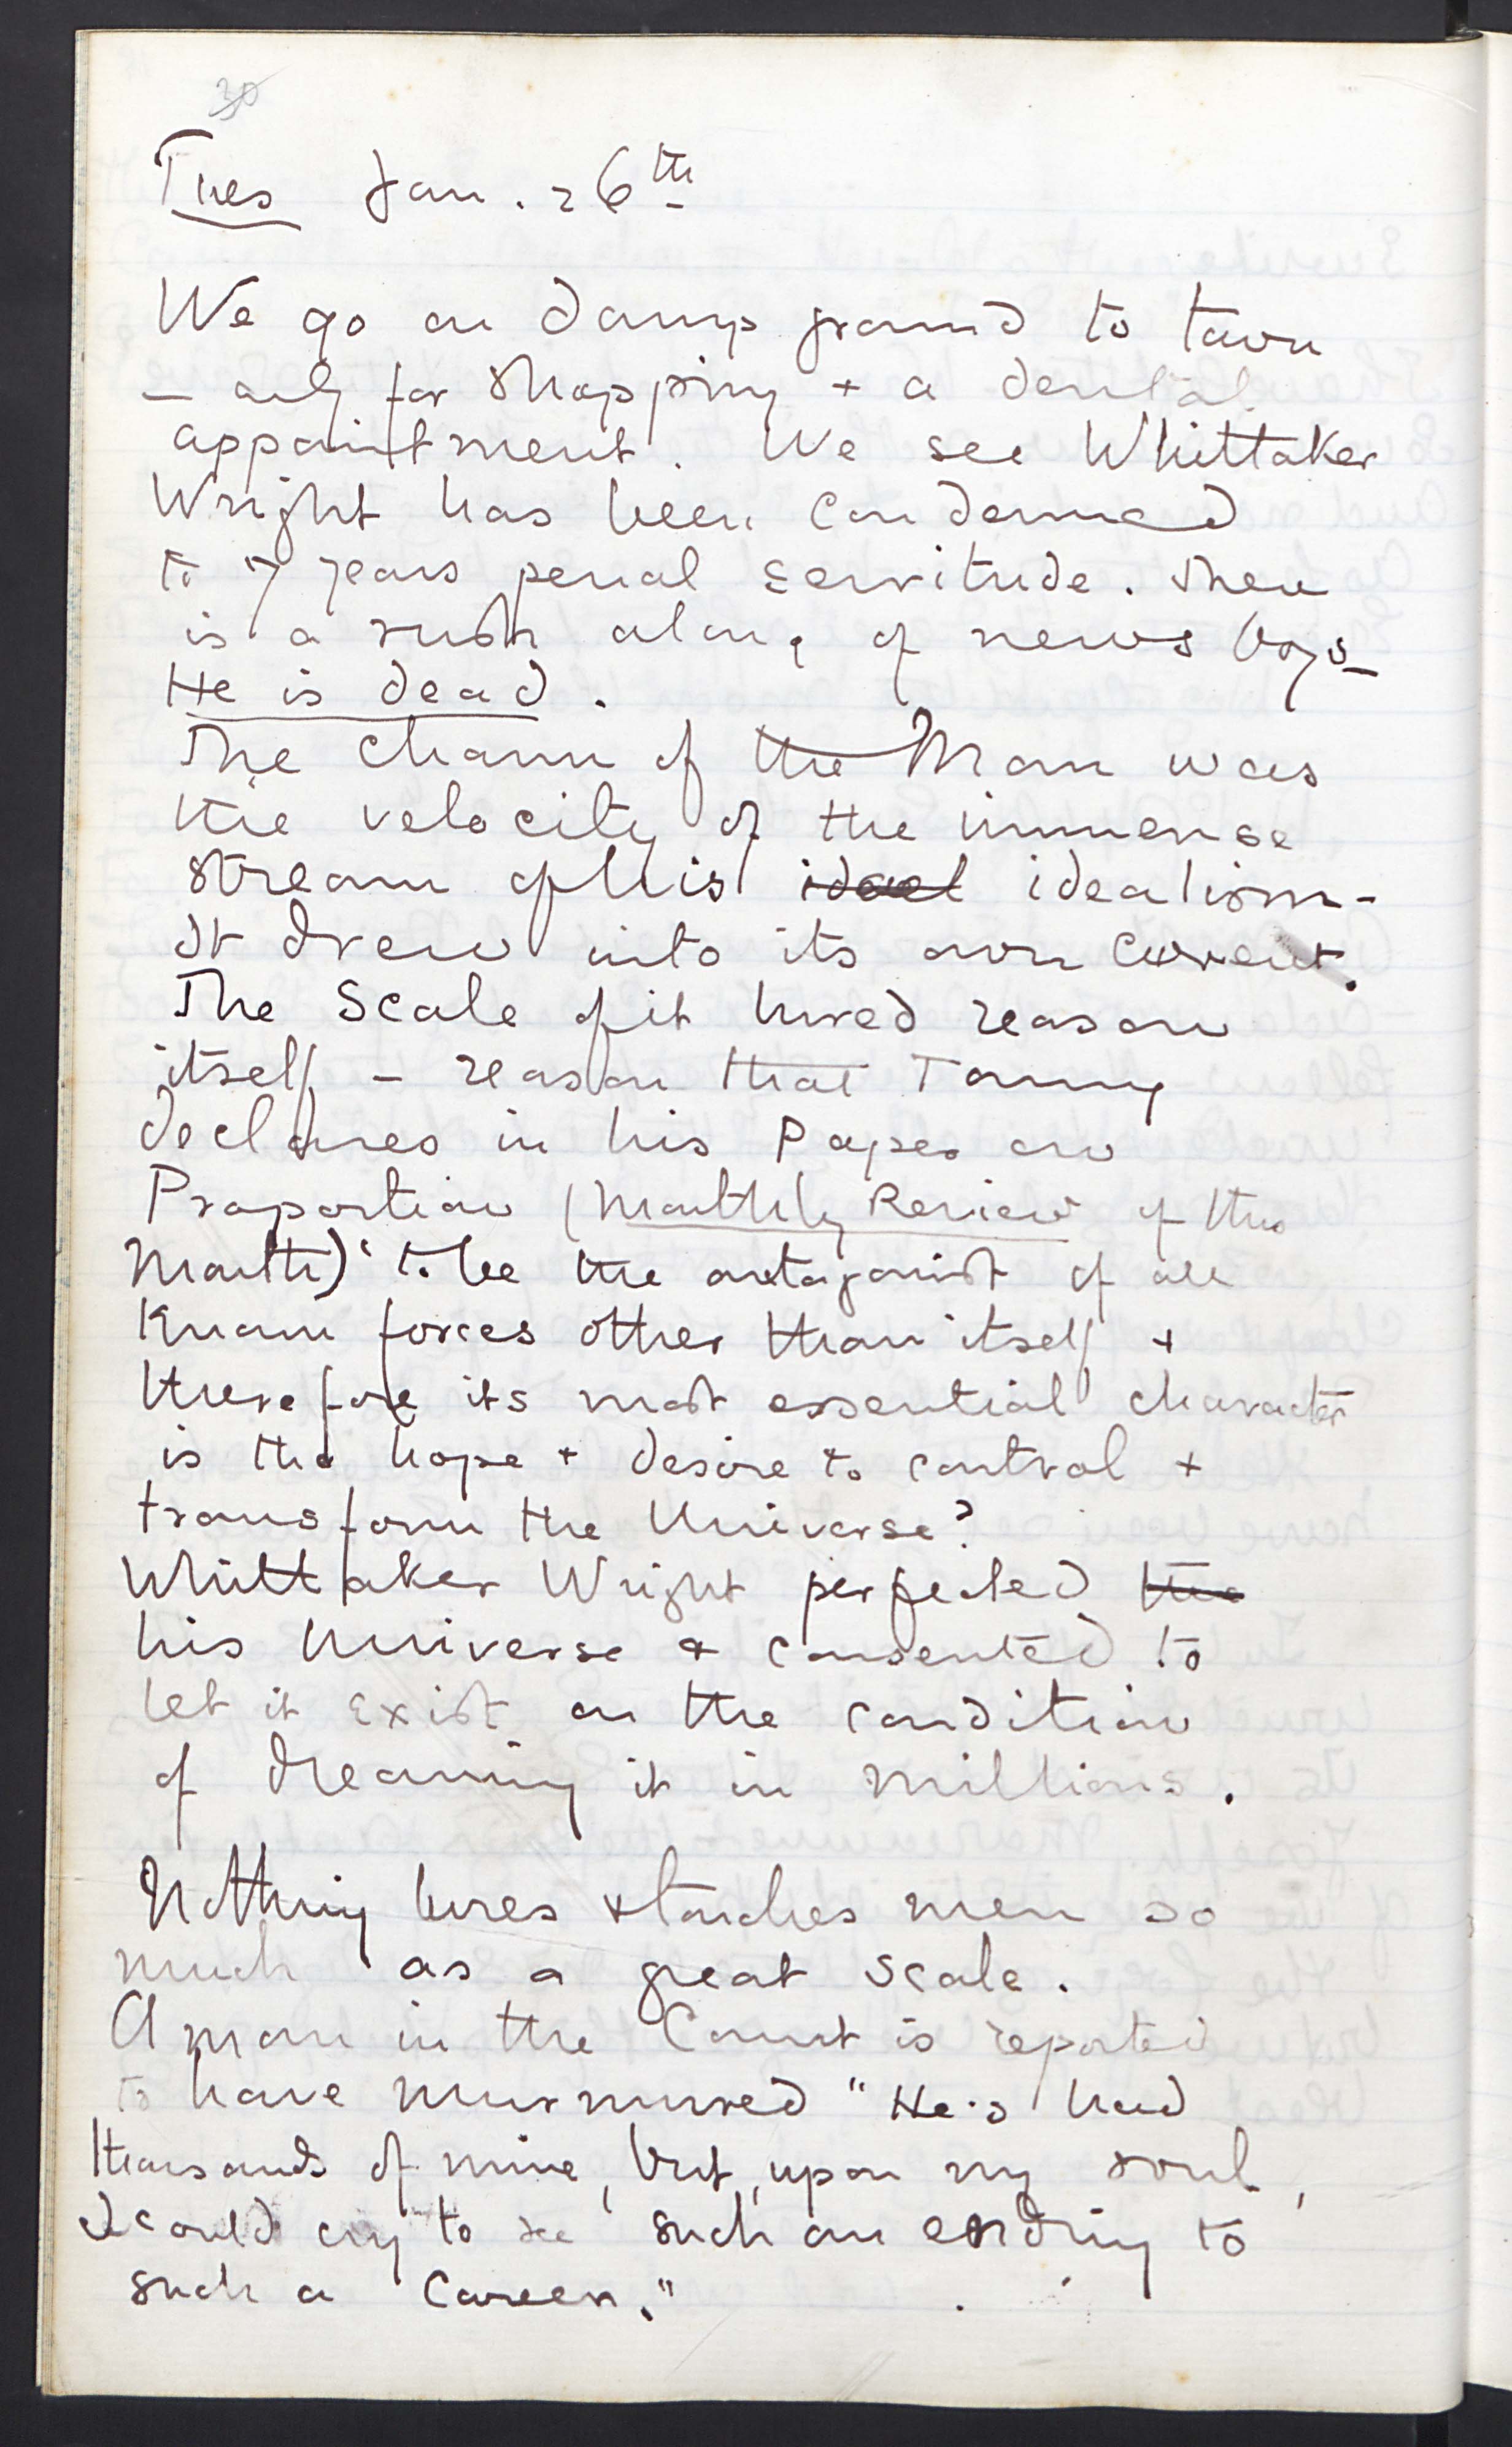 30
Tues Jan. 26th
We go on damp ground to town
– only for shopping + a dental
appointment. We see Whittaker
Wright has been condemned
to 7 years penal servitude. Then
is a rush along of news boys –
He is dead.
The charm of the Man was
the velocity of the immense
stream of his ideal idealism –
It drew into its own current.
The Scale of it lured reason
itself – reason that Tommy
declares in his Paper on
Proportion (Monthly Review of this
Month) 'to be the antagonist of all
known forces other than itself +
therefore its most essential character
is the hope + desire to control +
transform the Universe?
Whittaker Wright perfected the
his Universe + consented to
let it exist on the condition
of dreaming it in millions.
Nothing lures + touches men so
much as a great scale.
A man in the Court is reported
to have murmured "He's had
thousands of mine, but, upon my soul,
I could cry to see such an ending to
such a career."